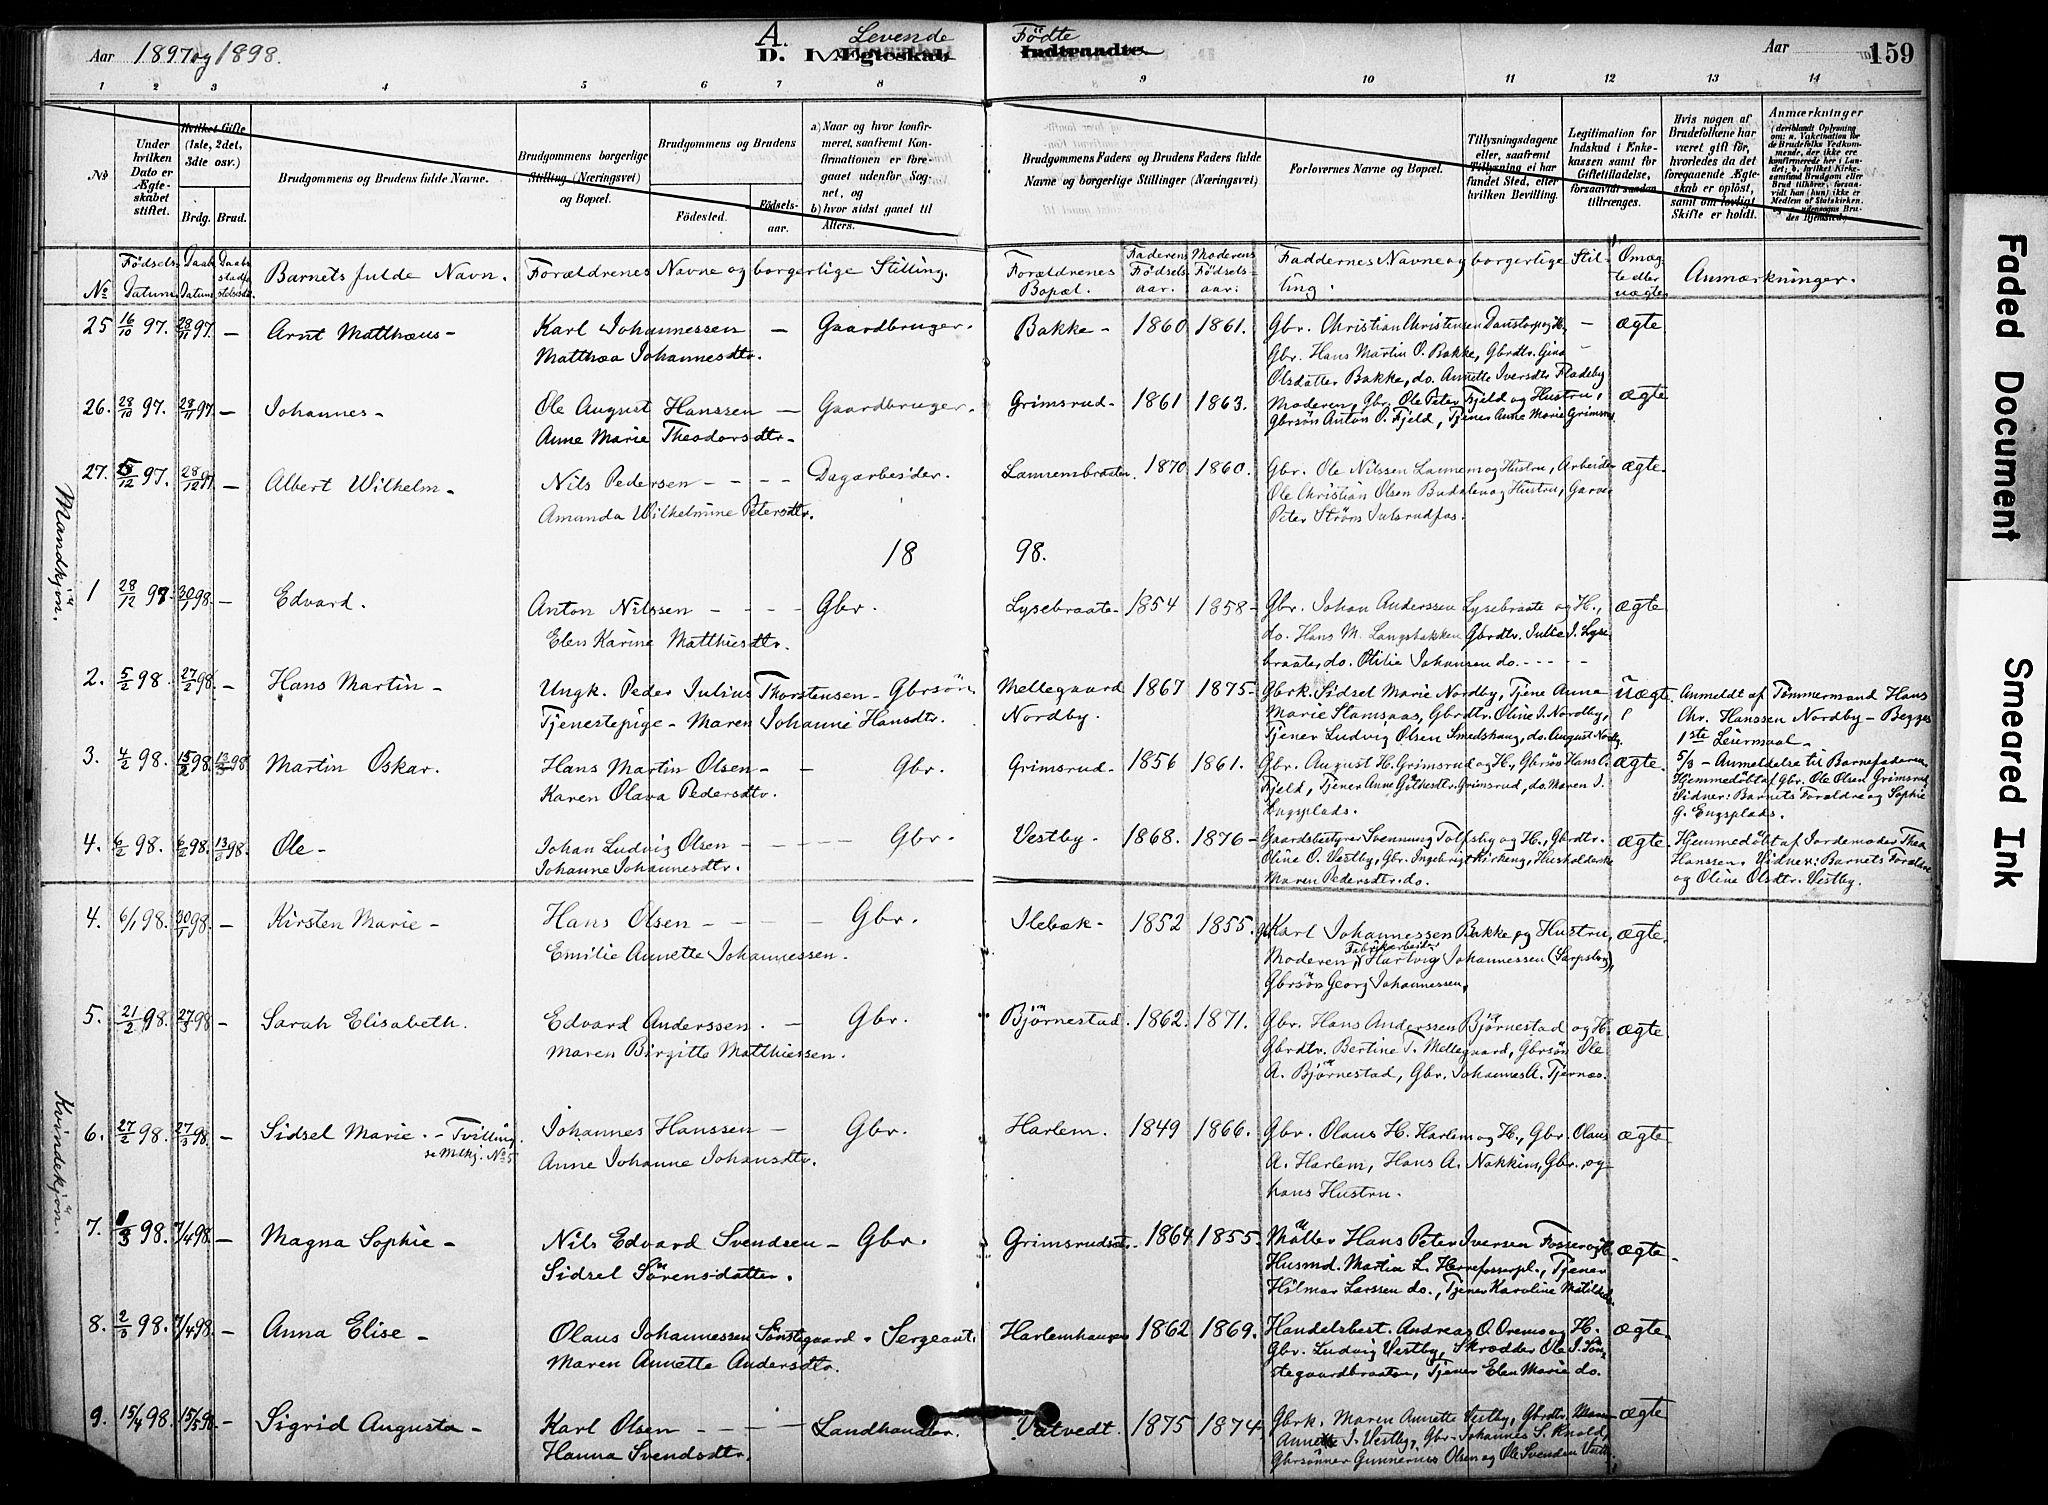 Aar 1897 og 1898.
A. Levende Fødte
D. I. Ægteskab Indtraadte.
Aar 159
1 2 3 4 5 6 7 8 9 10 11 12 13 14
No
Under hvilken Dato er Ægteskabet stiftet.
Hvilket Gifte (1ste, 2det, 3die osv.)
Brdg. Brud.
Brudgommens og Brudens fulde Navne.
Brudgommens borgerlige Stilling (Næringsvei) og Bopæl.
Brudgommens og Brudens
Fødested. Fødselsaar.
a) Naar og hvor konfirmeret, saafremt Konfirmationen er foregaaet udenfor Sognet, og
b) hvor sidst gaaet til Alters.
Brudgommens Faders og Brudens Faders fulde Navne og borgerlige Stillinger (Næringsvei)
Forlovernes Navne og Bopæl.
Tillysningsdagene eller, saafremt Tillysning ei har fundet Sted, efter hvilken Bevilling.
Legitimation for Indskud i Enkekassen samt for Giftetilladelse, forsaavidt saadan tiltrænges.
Hvis nogen af Brudefolkene har været gift før, hvorledes da det foregaaende Ægteskab er opløst, samt om lovligt Skifte er holdt.
Anmærkninger
No Fødsels Datum. Daabs Datum Daabs stadfæstelsesdt. Barnets fulde Navn. Forældrenes Navne og borgerlige Stilling. Forældrenes Bopæl. Faderens Fødselsaar. Moderens Fødselsaar. Faddernes Navne og borgerlige Stilling. Om ægte eller uægte Anmærkninger.
Mandkjøn.
25 16/10 97. 28/11 97. — Arnt Matthæus - Karl Johannessen — Gaardbruger. Bakke - 1860 1861. Gbr. Christian Christensen Danstorp og H., — ægte
Matthea Johannesdtr. Gbr. Hans Martin O. Bakke, Gbrdtr. Gina
Olsdatter Bakke, do. Annette Iversdtr Fladeby
26. 28/10 97. 28/11 97. — Johannes - Ole August Hanssen — Gaardbruger. Grimsrud - 1861 1863. Moderen, Gbr. Ole Peter Fjeld og Hustru, ægte
Anne Marie Theodorsdtr - Gbrsøn Anton O. Fjeld, Tjener Anne Marie Grimsrud
27. 5/12 97. 28/12 97 — Albert Wilhelm - Nils Pedersen - - - - Dagarbeider. Lannembraaten. 1870 1860. Gbr. Ole Nilssen Lannem og Hustru, Arbeider ægte
Amanda Wilhelmine Petersdtr. Ole Christian Olsen Budalen og Hustru, Garver
Peter Strøm Julsrudfos.
18 98.
1 28/12 97. 30/1 98. — Edvard. Anton Nilssen - - - Gbr. Lysebraate - 1854 1858 - Gbr. Johan Anderssen Lysebraate og H., ægte
Elen Karine Matthiesdtr. do. Hans M. Langsbakken Gbrdtr. Julie J. Lyse-
braate, do. Otilie Johansen do. - - - -
2. 5/2 98. 27/2 98. — Hans Martin - Ungk. Peder Julius Thorstensen - Gbrsøn Mellegaard 1867 1875 - Gbrk. Sidsel Marie Nordby, Tjene Anna uægte Anmeldt af Tømmermand Hans
Tjenestepige - Maren Johanne Hansdtr. Nordby. Marie Stamsaas, Gbrdtr. Oline J. Nordby, Chr. Hanssen Nordby - Begges
Tjener Ludvig Olsen Smedshaug, do. August Nordby. 1ste Leiermaal -
3. 4/2 98. 15/2 98. 13/3 98 Martin Oskar. Hans Martin Olsen - - Gbr. Grimsrud - 1856 1861. Gbr. August H. Grimsrud og H., Gbrsøn Hans C. ægte. 5/3 - Anmeldelse til Barnefaderen
Karen Olava Pedersdtr. Fjeld, Tjener Anne Gulliksdtr. Grimsrud, do. Maren J. Hjemmedøbt af Gbr. Ole Olsen Grimsrud
Engsplads. Vidner: Barnets Forældre og Sophie G. Engsplads.
4. 6/2 98. 6/2 98. 13/3 98. Ole - Johan Ludvig Olsen - - - - Gbr. Vestby. 1868. 1876 - Gaardsbestyrer Svennung Tolfsby og H., Gbrdtr. ægte. Hjemmedøbt af Jordemoder Thea
Johanne Johannesdtr. Oline O. Vestby, Gbr. Ingebrigt Kirkeng, Husholderske Hanssen. Vidner: Barnets Forældre
Maren Pedersdtr. do. og Oline Olsdtr. Vestby.
Kvindekjøn.
4. 6/1 98. 30/1 98. — Kirsten Marie - Hans Olsen - - - Gbr. Ilebæk - 1852 1855. Gbr Karl Johannessen Bakke og Hustru, ægte.
Emilie Annette Johannessen. Moderen, Fabrikarbeider Hartvig Johannessen (Sarpsborg),
Gbrsøn Georg Johannessen.
5. 21/2 98. 27/3 98 — Sarah Elisabeth. Edvard Anderssen. - Gbr. Bjørnestad. 1862. 1871. Gbr. Hans Anderssen Bjørnestad og H. ægte.
Maren Birgitte Matthiessen. Gbrdtr. Bertine T. Mellegaard, Gbrsøn Ole
A. Bjørnestad, Gbr. Johannes A. Tjernæs.
6. 27/2 98. 27/3 98. — Sidsel Marie. - Tvilling. Johannes Hanssen - - Gbr. Harlem. 1849 1866. Gbr. Olaus H. Harlem og H., Gbr. Olaus ægte
se Mlkj. No 5 Anne Johanne Johansdtr. A. Harlem, Hans A. Nakkim, Gbr., og
hans Hustru.
7. /3 98. 7/4 98. — Magna Sophie - Nils Edvard Svendsen - Gbr. Grimsrud 1864 1855. Møller Hans Peter Iversen ægte -
Sidsel Sørensdatter. Husmd. Martin L. Tjener
Hilmar Larssen do., Tjener Karoline
8. 2/3 98. 7/4 98. — Anna Elise - Olaus Johannessen Sønstegaard - Sergeant. Harlemhaugen 1862 1869. Handelsbest. Andreas O. Orems og H. ægte.
Maren Annette Andersdtr. Gbr. Ludvig Vestby, Skrædder Ole J. Søn-
stegaardbraaten, Tjener Elen Marie do.
9. 15/4 98. 15/5 98. — Sigrid Augusta - Karl Olsen - - - Landhandler. Vatvedt. 1875 1874. Gbrk. Maren Annette Vestby, Gbrdtr. ægte
Hanna Svendsdtr. Annette J. Vestby, Gbr. Johannes S. Knold,
Gbrsønner Gunnerius Olsen og Ole Svendsen
Faded Document
Smeared Ink